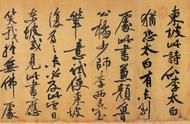 東坡此詩似李太白
猶恐太白有未到
處此書兼顏魯
公楊少師李西臺
筆意試使東坡
復為之未必及此它日
東坡或見此書應
笑我於無佛處